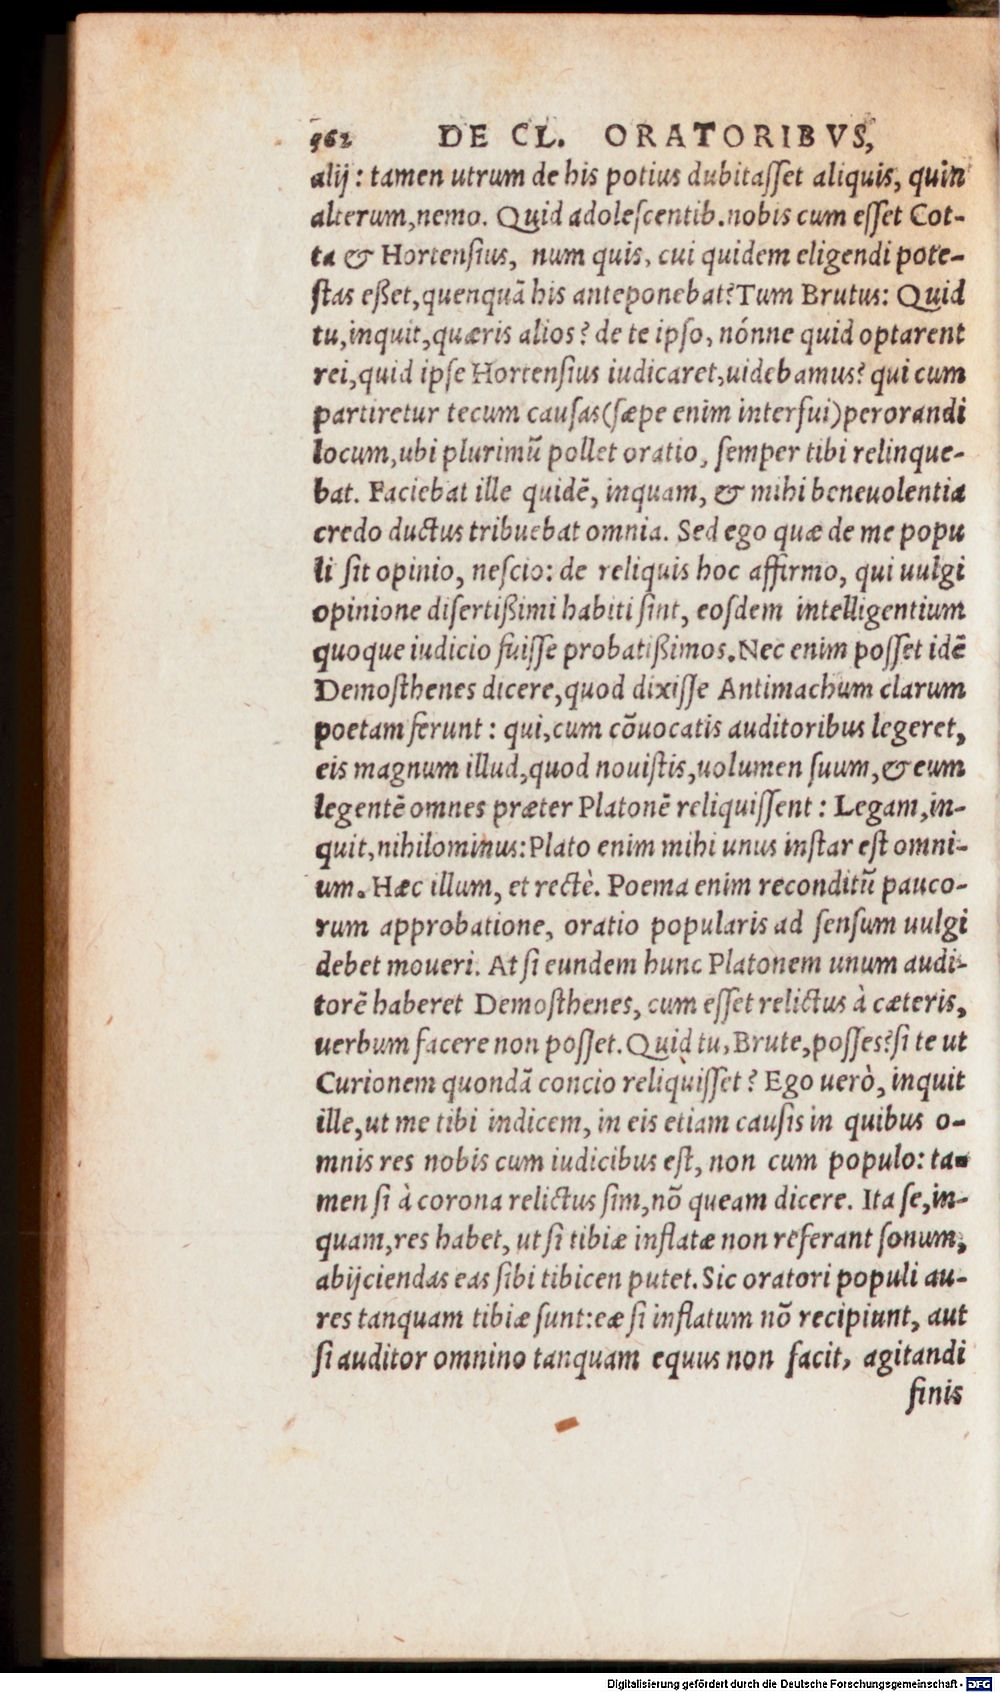 562 DE CL. ORATORIBVS,
alij: tamen utrum de his potius dubitasset aliquis, quin
alterum, nemo. Quid adolescentib. nobis cum esset Cot-
ta & Hortensius, num quis, cui quidem eligendi pote-
stas eßet, quenquā his anteponebat? Tum Brutus: Quid
tu, inquit, quæris alios? de te ipso, nónne quid optarent
rei, quid ipse Hortensius iudicaret, uidebamus? qui cum
partiretur tecum causas (sæpe enim interfui) perorandi
locum, ubi plurimū pollet oratio, semper tibi relinque-
bat. Faciebat ille quidē, inquam, & mihi beneuolentia
credo ductus tribuebat omnia. Sed ego quæ de me popu
li sit opinio, nescio: de reliquis hoc affirmo, qui uulgi
opinione disertißimi habiti sint, eosdem intelligentium
quoque iudicio fuisse probatißimos. Nec enim posset idē
Demosthenes dicere, quod dixisse Antimachum clarum
poetam ferunt: qui, cum cōuocatis auditoribus legeret,
eis magnum illud, quod nouistis, uolumen suum, & eum
legentē omnes præter Platonē reliquissent: Legam, in-
quit, nihilominus: Plato enim mihi unus instar est omni-
um. Hæc illum, et rectè. Poema enim reconditū pauco-
rum approbatione, oratio popularis ad sensum uulgi
debet moueri. At si eundem hunc Platonem unum audi-
torē haberet Demosthenes, cum esset relictus à cæteris,
uerbum facere non posset. Quid tu, Brute, posses? si te ut
Curionem quondā concio reliquisset? Ego uerò, inquit
ille, ut me tibi indicem, in eis etiam causis in quibus o-
mnis res nobis cum iudicibus est, non cum populo: ta-
men si à corona relictus sim, nō queam dicere. Ita se, in-
quam, res habet, ut si tibiæ inflatæ non referant sonum,
abijciendas eas sibi tibicen putet. Sic oratori populi au-
res tanquam tibiæ sunt: eæ si inflatum nō recipiunt, aut
si auditor omnino tanquam equus non facit, agitandi
finis
Digitalisierung gefördert durch die Deutsche Forschungsgemeinschaft - DFG